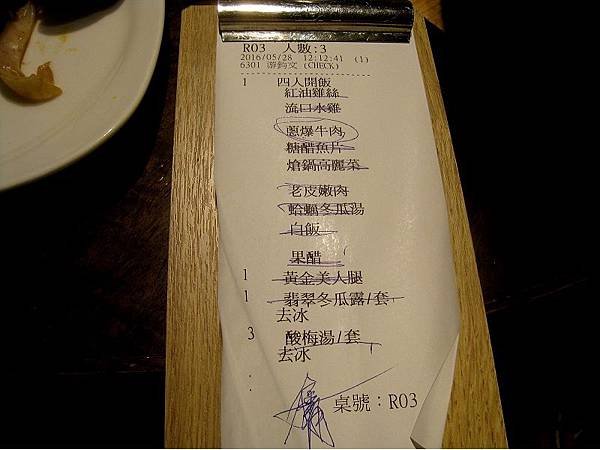 R03 人數:3
2016/05/28 12:12:41 (1)
6301 游鈞文 (CHECK)
1 四人開飯
紅油雞絲
流口水雞
蔥爆牛肉
糖醋魚片
熗鍋高麗菜
老皮嫩肉
蛤蠣冬瓜湯
白飯
果醋
1 黃金美人腿
1 翡翠冬瓜露/套
去冰
3 酸梅湯/套
去冰
桌號:R03